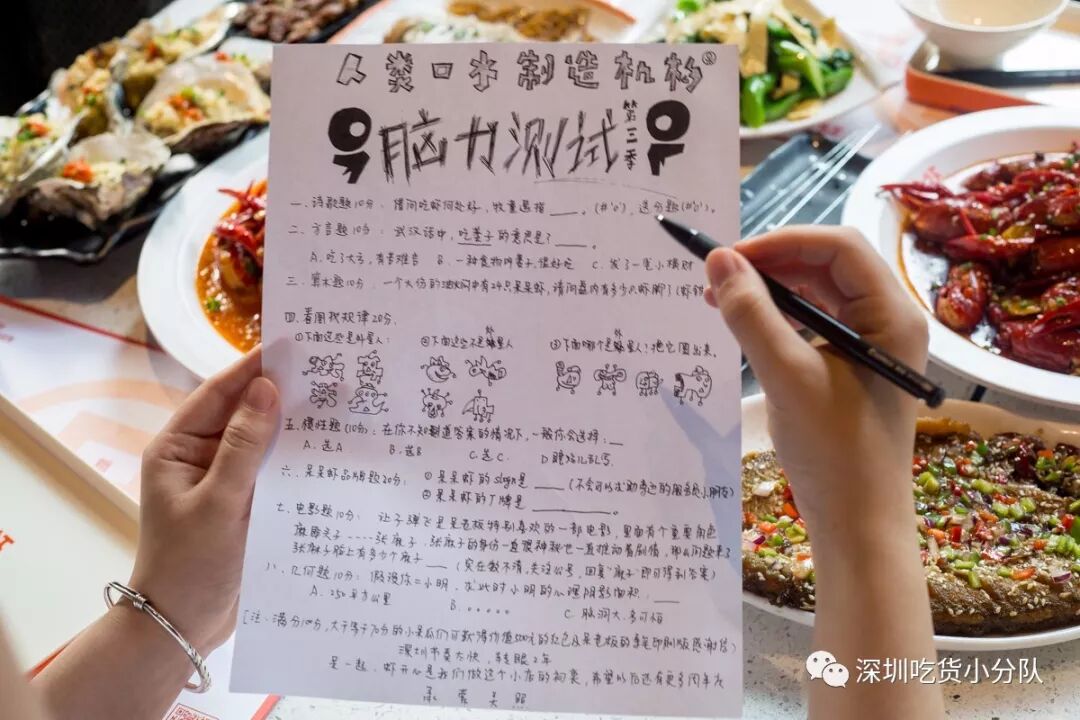 人类口水制造机构®
脑力测试 第三季
一、诗歌题10分：借问吃虾何处好，牧童遥指____。(#'o')，送分题(#'o')。
二、方言题10分：武汉话中，吃墨子的意思是？____。
A、吃了大亏，有苦难言 B、一种食物叫墨子，很好吃 C、发了一笔小横财
三、算术题10分：一个大份的油焖中有24只呆呆虾，请问盘内有多少只虾脚？(虾钳
四、看图找规律20分。
①下面这些是外星人： ②下面这些不是外星人 ③下面哪个是外星人？把它圈出来。
五、惯性题(10分)：在你不知道答案的情况下，一般你会选择：__
A、选A B、选B C、选C、 D 瞎鸡儿乱写、
六、呆呆虾品牌题20分： ①呆呆虾的slogn是____(不会可以求助旁边的服务处小朋友)
②呆呆虾的门牌是______。
七、电影题10分： 让子弹飞是呆老板特别喜欢的一部电影，里面有个重要角色
麻匪头子----张麻子，张麻子的身份一直很神秘也一直推动着剧情，那么问题来了
张麻子脸上有多少个麻子____(实在数不清，关注公号，回复“麻子”即可得到答案)
八、几何题10分：假设你=小明，求此时小明的心理阴影面积：____
A、250平方公里 B、。。。。。 C、脑洞大、多可怕
[注：满分100分，大于等于70分的小呆瓜们可获得价值500元的红包及呆老板的亲笔印刷版感谢信]
深圳市要大快，转眼2年
是一起、虾开心是我们做这个小店的初衷，希望以后还有更多周年庆
承蒙关照
深圳吃货小分队